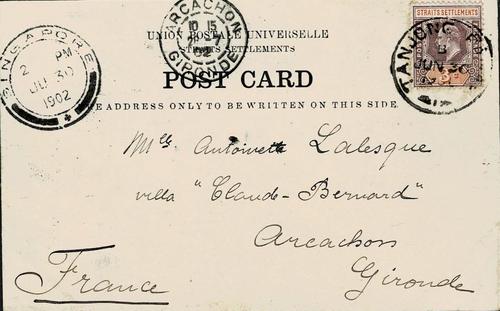 SINGAPORE
2 PM
JU 30
1902
ARCACHON
10 15
02
GIRONDE
STRAITS SETTLEMENTS
TANJONG
B
JUN 30
UNION POSTALE UNIVERSELLE
STRAITS SETTLEMENTS
POST CARD
THE ADDRESS ONLY TO BE WRITTEN ON THIS SIDE.
Mlle Antoinette Lalesque
villa "Claude-Bernard"
Arcachon
Gironde
France